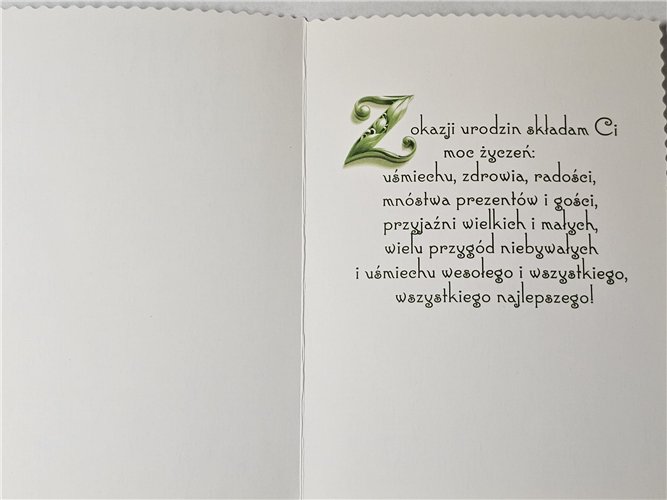 Z okazji urodzin składam Ci
moc życzeń:
uśmiechu, zdrowia, radości,
mnóstwa prezentów i gości,
przyjaźni wielkich i małych,
wielu przygód niebywałych
i uśmiechu wesołego i wszystkiego,
wszystkiego najlepszego!